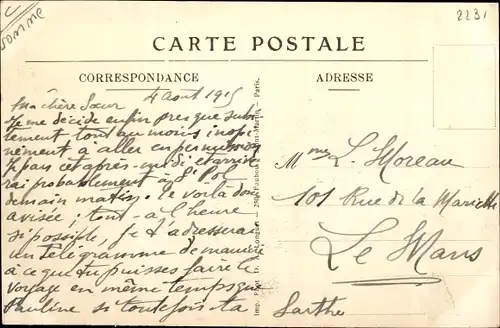 Somme
2231
CARTE POSTALE
CORRESPONDANCE
ADRESSE
4 Août 1915
Ma chère Sœur
Je me décide enfin presque subi-
tement tout au moins inopi-
nément à aller en permission
Je pars cet après-midi et arrive-
rai probablement à St Pol
demain matin. Te voilà donc
avisée ; tout-à l'heure
si possible, je t'adresserai
un télégramme de manière
à ce que tu puisses faire le
voyage en même temps que
Pauline si toutefois ta
Mme L. Moreau
101 Rue de la Mariette
Le Mans
Sarthe
Imp. Phot. D. A. Longuet — 250, Faubourg Saint-Martin, Paris.